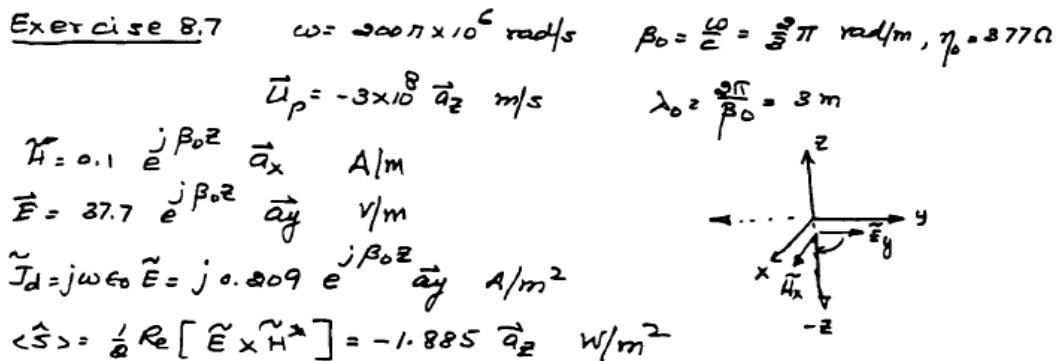 Exercise 8.7 ω = 200π×10⁶ rad/s β₀ = ω/c = 2/3 π rad/m, η₀ = 377Ω
U⃗ₚ = -3×10⁸ a⃗_z m/s λ₀ = 2π/β₀ = 3 m
H̃ = 0.1 e^{jβ₀z} a⃗ₓ A/m
E⃗ = 37.7 e^{jβ₀z} a⃗y V/m
J̃_d = jωε₀ Ẽ = j 0.209 e^{jβ₀z} a⃗y A/m²
<Ŝ> = ½ Re [ Ẽ × H̃* ] = -1.885 a⃗_z W/m²
z
y
Ẽy
x
H̃x
-z